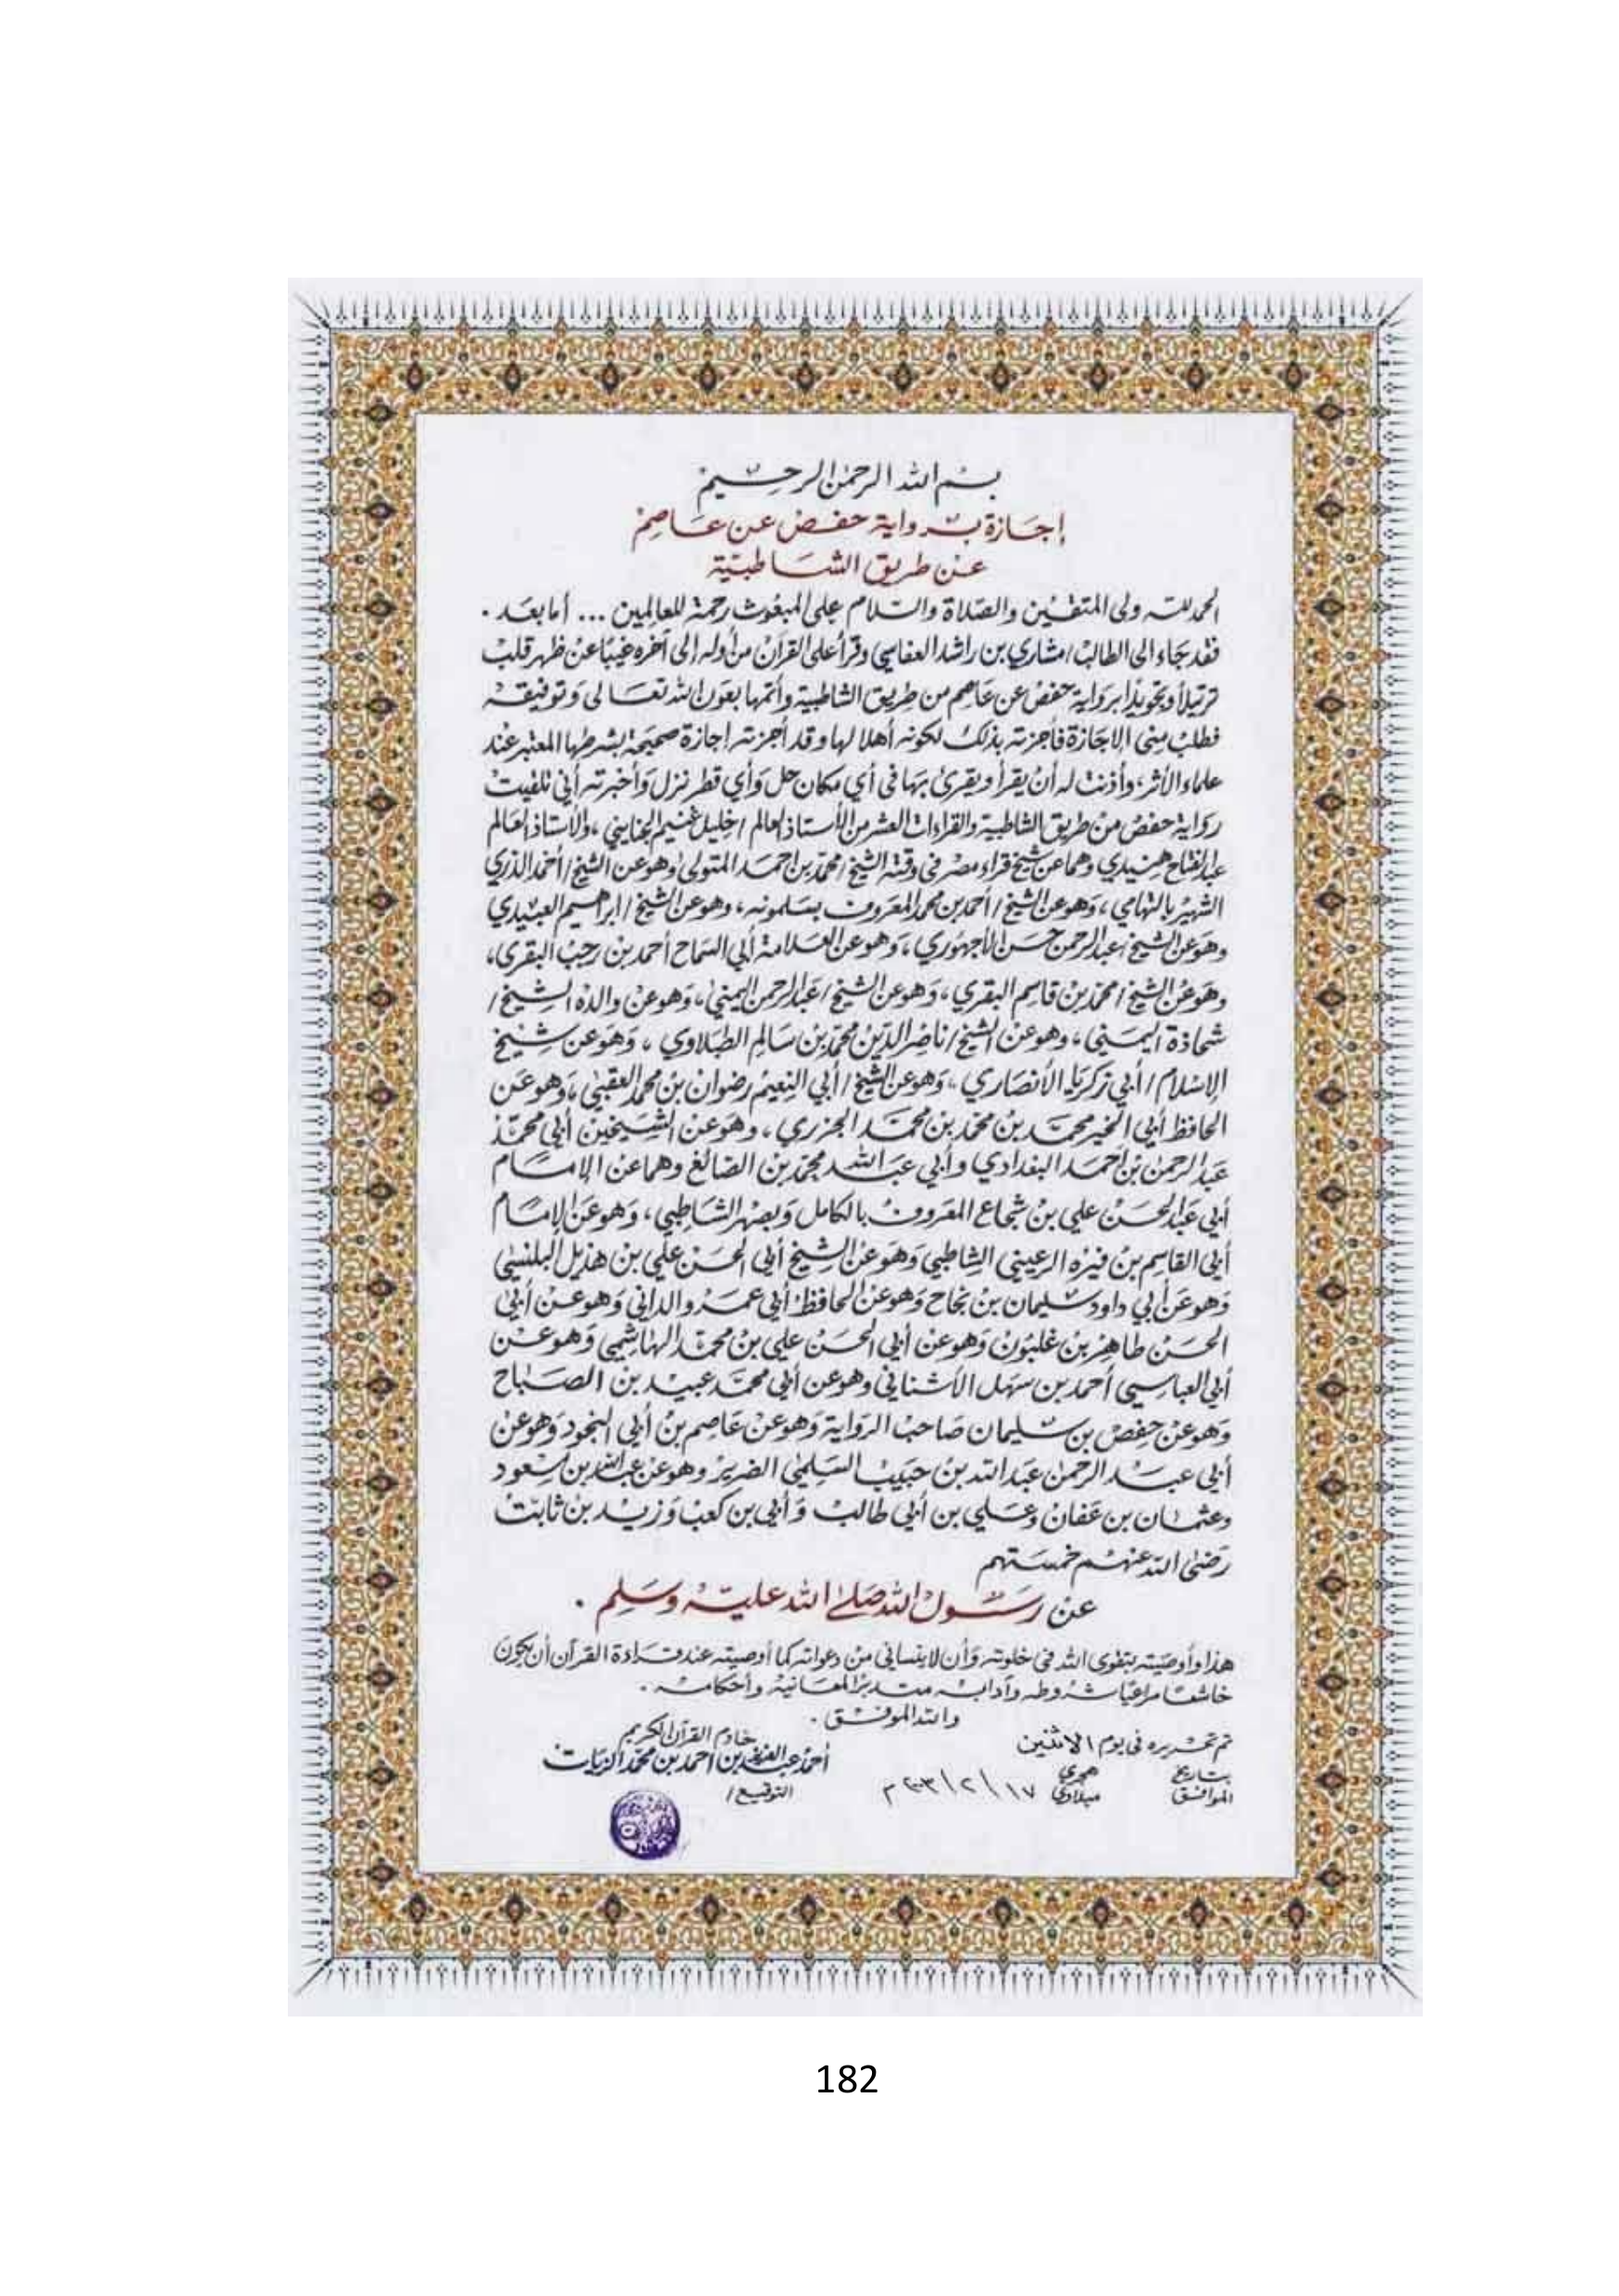 بسم الله الرحمن الرحيم
إجازة برواية حفص عن عاصم
عن طريق الشاطبية
الحمد لله ولى المتقين والصلاة والسلام على المبعوث رحمة للعالمين ... أما بعد .
فقد جاء الى الطالب / مشاري بن راشد العفاسي وقرأ على القرآن من أوله إلى آخره غيبًا عن ظهر قلب
ترتيلاً وتجويدًا برواية حفص عن عاصم من طريق الشاطبية وأتمها بعون الله تعالى وتوفيقه
فطلب منى الاجازة فأجزته بذلك لكونه أهلا لها وقد أجزته إجازة صحيحة بشرطها المعتبر عند
علماء الأثر، وأذنت له أن يقرأ ويقرئ بها فى أي مكان حل وأي قطر نزل وأخبرته أني تلقيت
رواية حفص من طريق الشاطبية والقراءات العشر من الأستاذ العالم / خليل غنيم الجنايني ، والأستاذ العالم
عبد الفتاح هنيدي وهما عن شيخ قراء مصر فى وقته الشيخ / محمد بن احمد المتولى وهو عن الشيخ / أحمد الدري
الشهير بالتهامي ، وهو عن الشيخ / أحمد بن محمد المعروف بسلمونه ، وهو عن الشيخ / ابراهيم العبيدي
وهو عن الشيخ / عبد الرحمن حسن الأجهوري ، وهو عن العلامة أبي السماح أحمد بن رجب البقري ،
وهو عن الشيخ / محمد بن قاسم البقري ، وهو عن الشيخ / عبد الرحمن اليمني ، وهو عن والده الشيخ /
شحاذة اليمني ، وهو عن الشيخ / ناصر الدين محمد بن سالم الطبلاوي ، وهو عن شيخ
الإسلام / أبي زكريا الأنصاري ، وهو عن الشيخ / أبي النعيم رضوان بن محمد العقبي ، وهو عن
الحافظ أبي الخير محمد بن محمد بن محمد الجزري ، وهو عن الشيخين أبي محمد
عبد الرحمن بن احمد البغدادي وأبي عبد الله محمد بن الصائغ وهما عن الإمام
أبي عبد الحسن علي بن شجاع المعروف بالكامل وبصهر الشاطبي ، وهو عن الإمام
أبي القاسم بن فيره الرعيني الشاطبي وهو عن الشيخ أبي الحسن علي بن هذيل البلنسي
وهو عن أبي داود سليمان بن نجاح وهو عن الحافظ أبي عمرو الداني وهو عن أبي
الحسن طاهر بن غلبون وهو عن أبي الحسن علي بن محمد الهاشمي وهو عن
أبي العباسي أحمد بن سهل الأشناني وهو عن أبي محمد عبيد بن الصباح
وهو عن حفص بن سليمان صاحب الرواية وهو عن عاصم بن أبي النجود وهو عن
أبي عبد الرحمن عبد الله بن حبيب السلمي الضرير وهو عن عبد الله بن مسعود
وعثمان بن عفان وعلي بن أبي طالب وأبي بن كعب وزيد بن ثابت
رضى الله عنهم خمستهم
عن رسول الله صلى الله عليه وسلم .
هذا وأوصيته بتقوى الله فى خلوته وأن لا ينساني من دعواته كما أوصيته عند قراءة القرآن أن يكون
خاشعا مراعيا شروطه وآدابه متدبرًا لمعانيه وأحكامه .
والله الموفق .
تم تحريره فى يوم الاثنين
خادم القرآن الكريم
أحمد عبد العزيز بن احمد بن محمد الزيات
بتاريخ هجري
الموافق ١٧ / ٢ / ٢٠٠٣ م ميلادي
التوقيع /
182